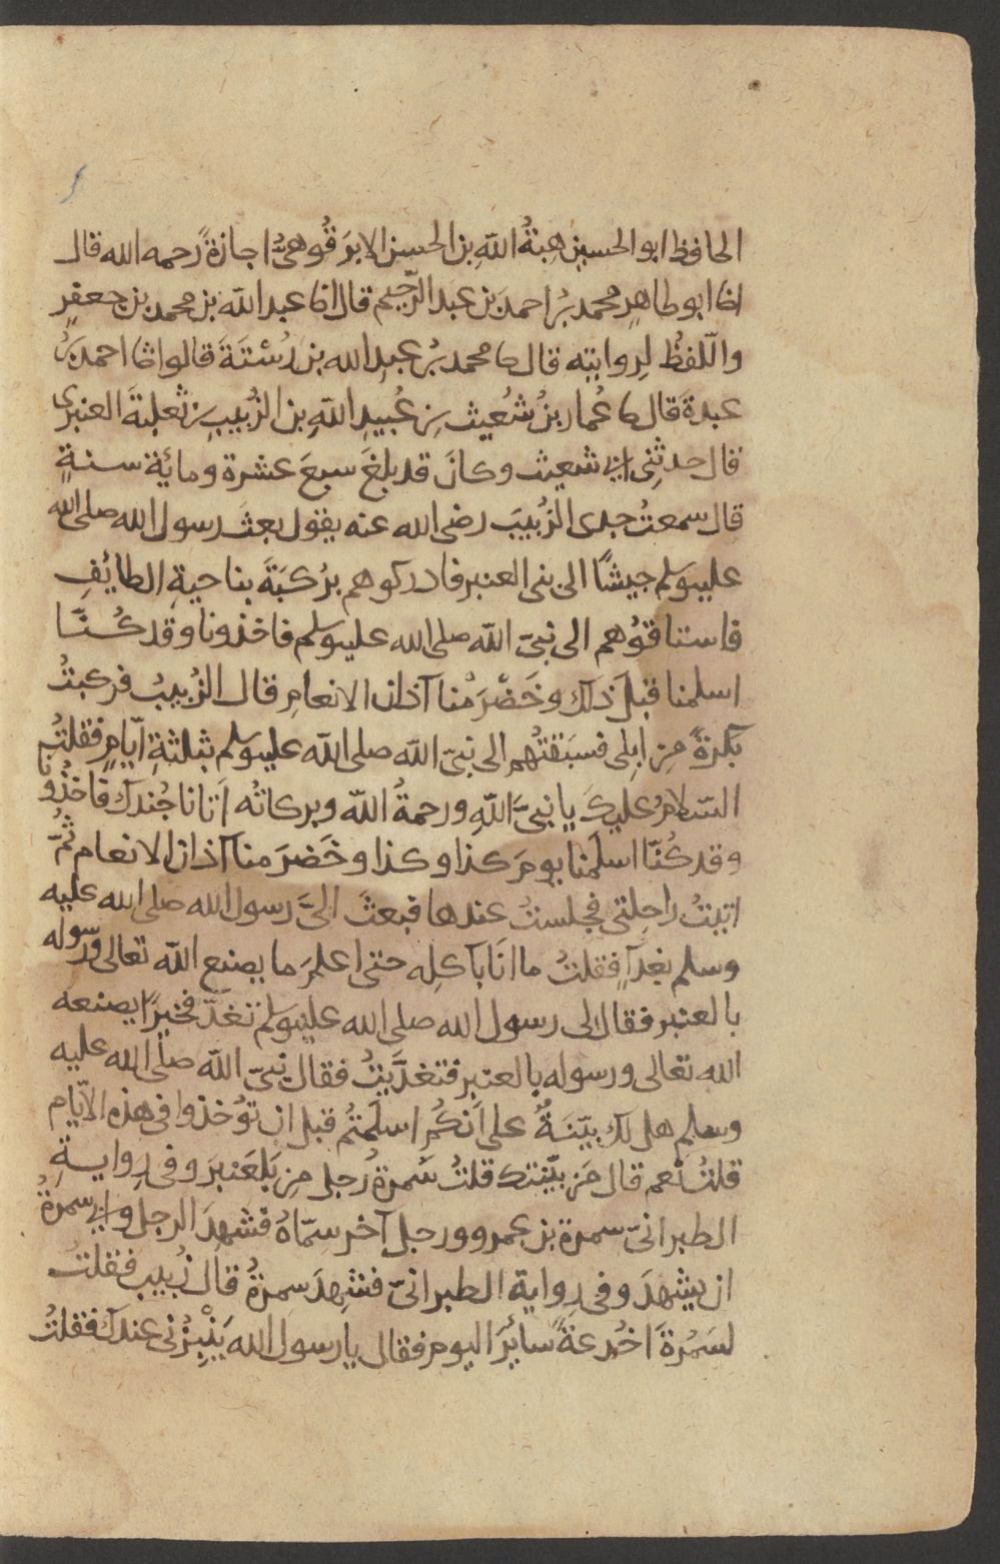 الحافظ ابو الحسين هبةُ اللّهِ بن الحسن الابرَقُوهىُّ اجازةً رحمه الله قال
انا ابو طاهرٍ محمد بنُ احمدَ بن عبد الرّحيم قال انا عبد اللّه بن محمد بن جعفرٍ
واللّفظُ لِروايته قال ثنا محمد بنُ عبيد الله بن رُستَةَ قالوا ثنا احمد بنُ
عبدةَ قال ثنا عُمار بنُ شُعيث بن عُبيدِ اللّهِ بن الزُبيبِ بن ثعلبةَ العنبرى
قال حدثنِى ابى شعيث وكانَ قد بلغَ سبعَ عشرة ومائة سنةٍ
قال سمعتُ جدى الزُبيبَ رضى الله عنه يقول بعثَ رسول الله صلى الله
عليه وسلم جيشًا الى بنى العنبر فادركوهم برُكبَةَ بناحيةِ الطائِفِ
فاستاقوُهم الى نبىّ اللّه صلى الله عليه وسلم فاخذونا وقد كُنّا
اسلمنا قبلَ ذلك وخَضْرَمْنا آذان الانعامِ قال الزُبيبُ فركبتُ
بكرةً من ابلى فسبَقتُهم الى نبىّ اللّه صلى اللّه عليه وسلم بثلثةِ ايّامٍ فقلتُ
السّلامُ عليكَ يا نبىَّ اللّهِ ورحمةُ اللّه وبركاتُه اَتانا جُندك فاخذُونا
وقد كُنّا اسلمنا يومَ كذا وكذا وخَضرَمنا آذان الانعام ثُمّ
اتيتُ راحِلتى فجلستُ عندها فبعثَ الىَّ رسول الله صلى الله عليه
وسلم بغدآءٍ فقلتُ ما انَا بآكلِه حتى اعلمَ ما يصنع اللّه تعالى ورسوله
بالعنبر فقال لى رسول الله صلى الله عليه وسلم تغدَّ فخيرًا يصنعه
اللّه تعالى ورسوله بالعنبر فتغدَّيتُ فقال نبىّ اللّه صلى الله عليه
وسلم هل لك بيّنةٌ على اَنكُم اسلَمتُم قبل ان تؤُخذوا فى هذه الايّام
قلتُ نَعم قال مَن بيّنتك قلتُ سَمرةُ رُجل من بَلعَنبرَ وفى رِوايةِ
الطبرانىّ سمرة بن عمرو ورجل آخر سمّاهُ فشهدَ الرجل وابى سمرةُ
ان يشهدَ وفى رِواية الطبرانىّ فشهِدَ سمرةُ قال زُبيب فقلتُ
لسَمُرةَ سائِرَ اليوم فقال يا رسول الله عندك فقلتُ